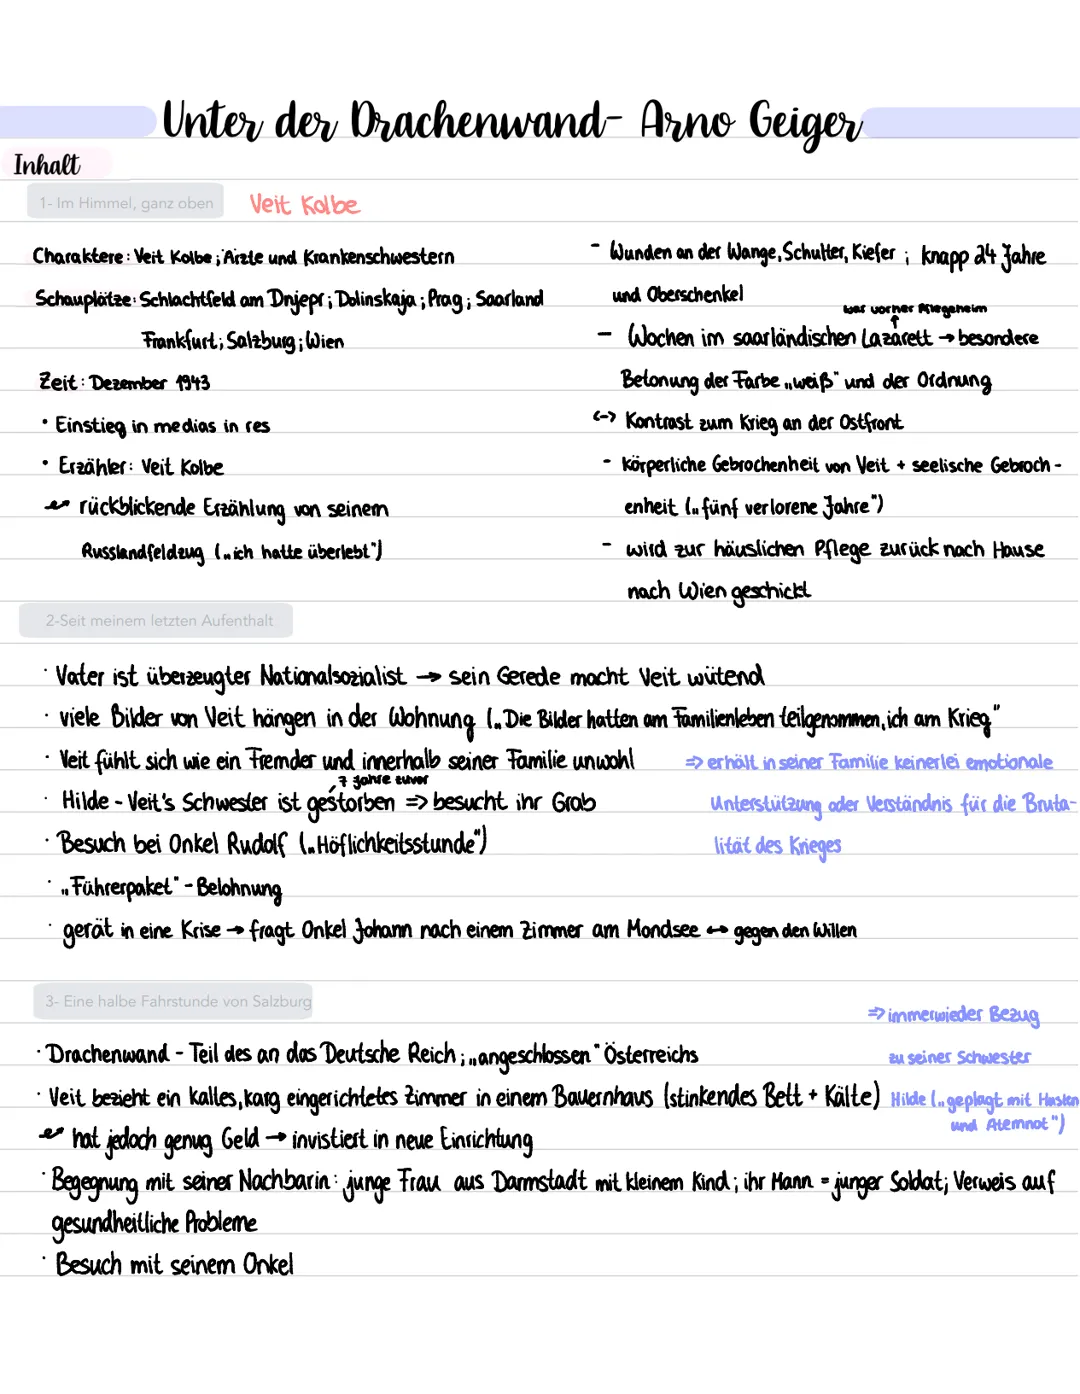 Unter der Drachenwand- Arno Geiger
Inhalt
1- Im Himmel, ganz oben
Veit Kolbe
Charaktere: Veit Kolbe; Ärzte und Krankenschwestern
Schauplätze: Schlachtfeld am Dnjepr; Dolinskaja; Prag; Saarland
Frankfurt; Salzburg; Wien
Zeit: Dezember 1943
• Einstieg in medias in res
• Erzähler: Veit Kolbe
↪ rückblickende Erzählung von seinem
Russlandfeldzug („ich hatte überlebt")
- Wunden an der Wange, Schulter, Kiefer ; knapp 24 Jahre
und Oberschenkel
war vorher Pflegeheim
- Wochen im saarländischen Lazarett → besondere
Betonung der Farbe „weiß" und der Ordnung
<-> Kontrast zum Krieg an der Ostfront
- körperliche Gebrochenheit von Veit + seelische Gebroch-
enheit („fünf verlorene Jahre")
- wird zur häuslichen Pflege zurück nach Hause
nach Wien geschickt
2-Seit meinem letzten Aufenthalt
· Vater ist überzeugter Nationalsozialist → sein Gerede macht Veit wütend
· viele Bilder von Veit hängen in der Wohnung („Die Bilder hatten am Familienleben teilgenommen, ich am Krieg"
· Veit fühlt sich wie ein Fremder und innerhalb seiner Familie unwohl
7 Jahre zuvor
· Hilde - Veit's Schwester ist gestorben => besucht ihr Grab
· Besuch bei Onkel Rudolf („Höflichkeitsstunde")
· „Führerpaket" - Belohnung
· gerät in eine Krise → fragt Onkel Johann nach einem Zimmer am Mondsee ↔ gegen den Willen
=> erhält in seiner Familie keinerlei emotionale
Unterstützung oder Verständnis für die Bruta-
lität des Krieges
3- Eine halbe Fahrstunde von Salzburg
· Drachenwand - Teil des an das Deutsche Reich; „angeschlossen" Österreichs
· Veit bezieht ein kaltes, karg eingerichtetes Zimmer in einem Bauernhaus (stinkendes Bett + Kälte)
↪ hat jedoch genug Geld → invistiert in neue Einrichtung
· Begegnung mit seiner Nachbarin: junge Frau aus Darmstadt mit kleinem Kind; ihr Mann = junger Soldat; Verweis auf
gesundheitliche Probleme
· Besuch mit seinem Onkel
=> immerwieder Bezug
zu seiner Schwester
Hilde („geplagt mit Husten
und Atemnot")